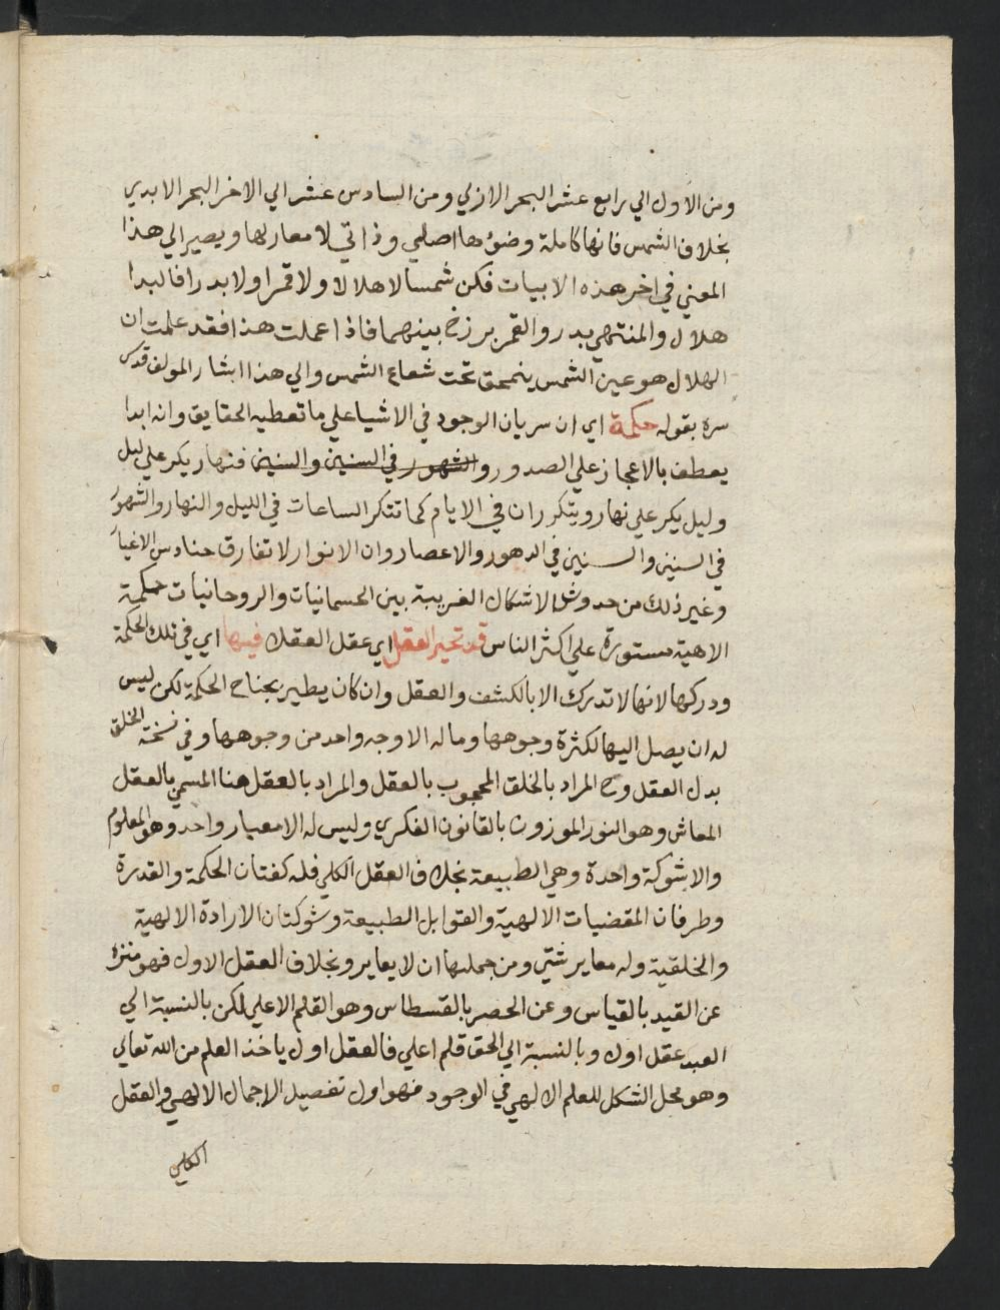 ومن الاول الي رابع عشر البحر الازلي ومن السادس عشر الي الاخر البحر الابدي
بخلاف الشمس فانها كاملة وضؤها اصلي وذاتي لا معار لها ويصير الي هذا
المعني في اخر هذه الابيات فكن شمسا لا هلالا ولا قمرا ولا بدرا فالبدا
هلال والمنتهي بدر والقمر برزخ بينهما فاذا عملت هذا فقد علمت ان
الهلال هو عين الشمس ينمحق تحت شعاع الشمس والي هذا اشار المولف قدس
سره بقوله حكمة اي ان سريان الوجود في الاشيا علي ما تعطيه الحقايق وانه ابدا
يعطف بالاعجاز علي الصدور والشهور في السنين والسنين فنهار يكر علي ليل
وليل يكر علي نهار ويتكرران في الايام كما تتكر الساعات في الليل والنهار والشهور
في السنين والسنين في الدهور والاعصار وان الانوار لا تفارق حنادس الاغيار
وغير ذلك من حدوث الاشكال الغريبة بين الجسمانيات والروحانيات حكمة
الاهية مستورة علي اكثر الناس قد تحير العقل اي عقل العقلا فيها اي في تلك الحكمة
ودركها لانها لا تدرك الا بالكشف والعقل وان كان يطير بجناح الحكمة لكن ليس
له ان يصل اليها لكثرة وجوهها وماله الا وجه واحد من وجوهها وفي نسخة الخلق
بدل العقل وح المراد بالخلق المحجوب بالعقل والمراد بالعقل هنا المسمي بالعقل
المعاش وهو النور الموزون بالقانون الفكري وليس له الا معيار واحد وهو المعلوم
والا شوكة واحدة وهي الطبيعة بخلاف العقل الكلي فله كفتان الحكمة والقدرة
وطرفان المقضيات الالهية والقوابل الطبيعة وشوكتان الارادة الالهية
والخلقية وله معاير شتي ومن جملتها ان لا يعاير وبخلاف العقل الاول فهو منزه
عن القيد بالقياس وعن الحصر بالقسطاس وهو القلم الاعلي لكن بالنسبة الي
العبد عقل اول وبالنسبة الي الحق قلم اعلي فالعقل اول ياخذ العلم من الله تعالي
وهو محل الشكل للعلم الالهي في الوجود فهو اول تفصيل الاجمال الالهي والعقل
الكلي